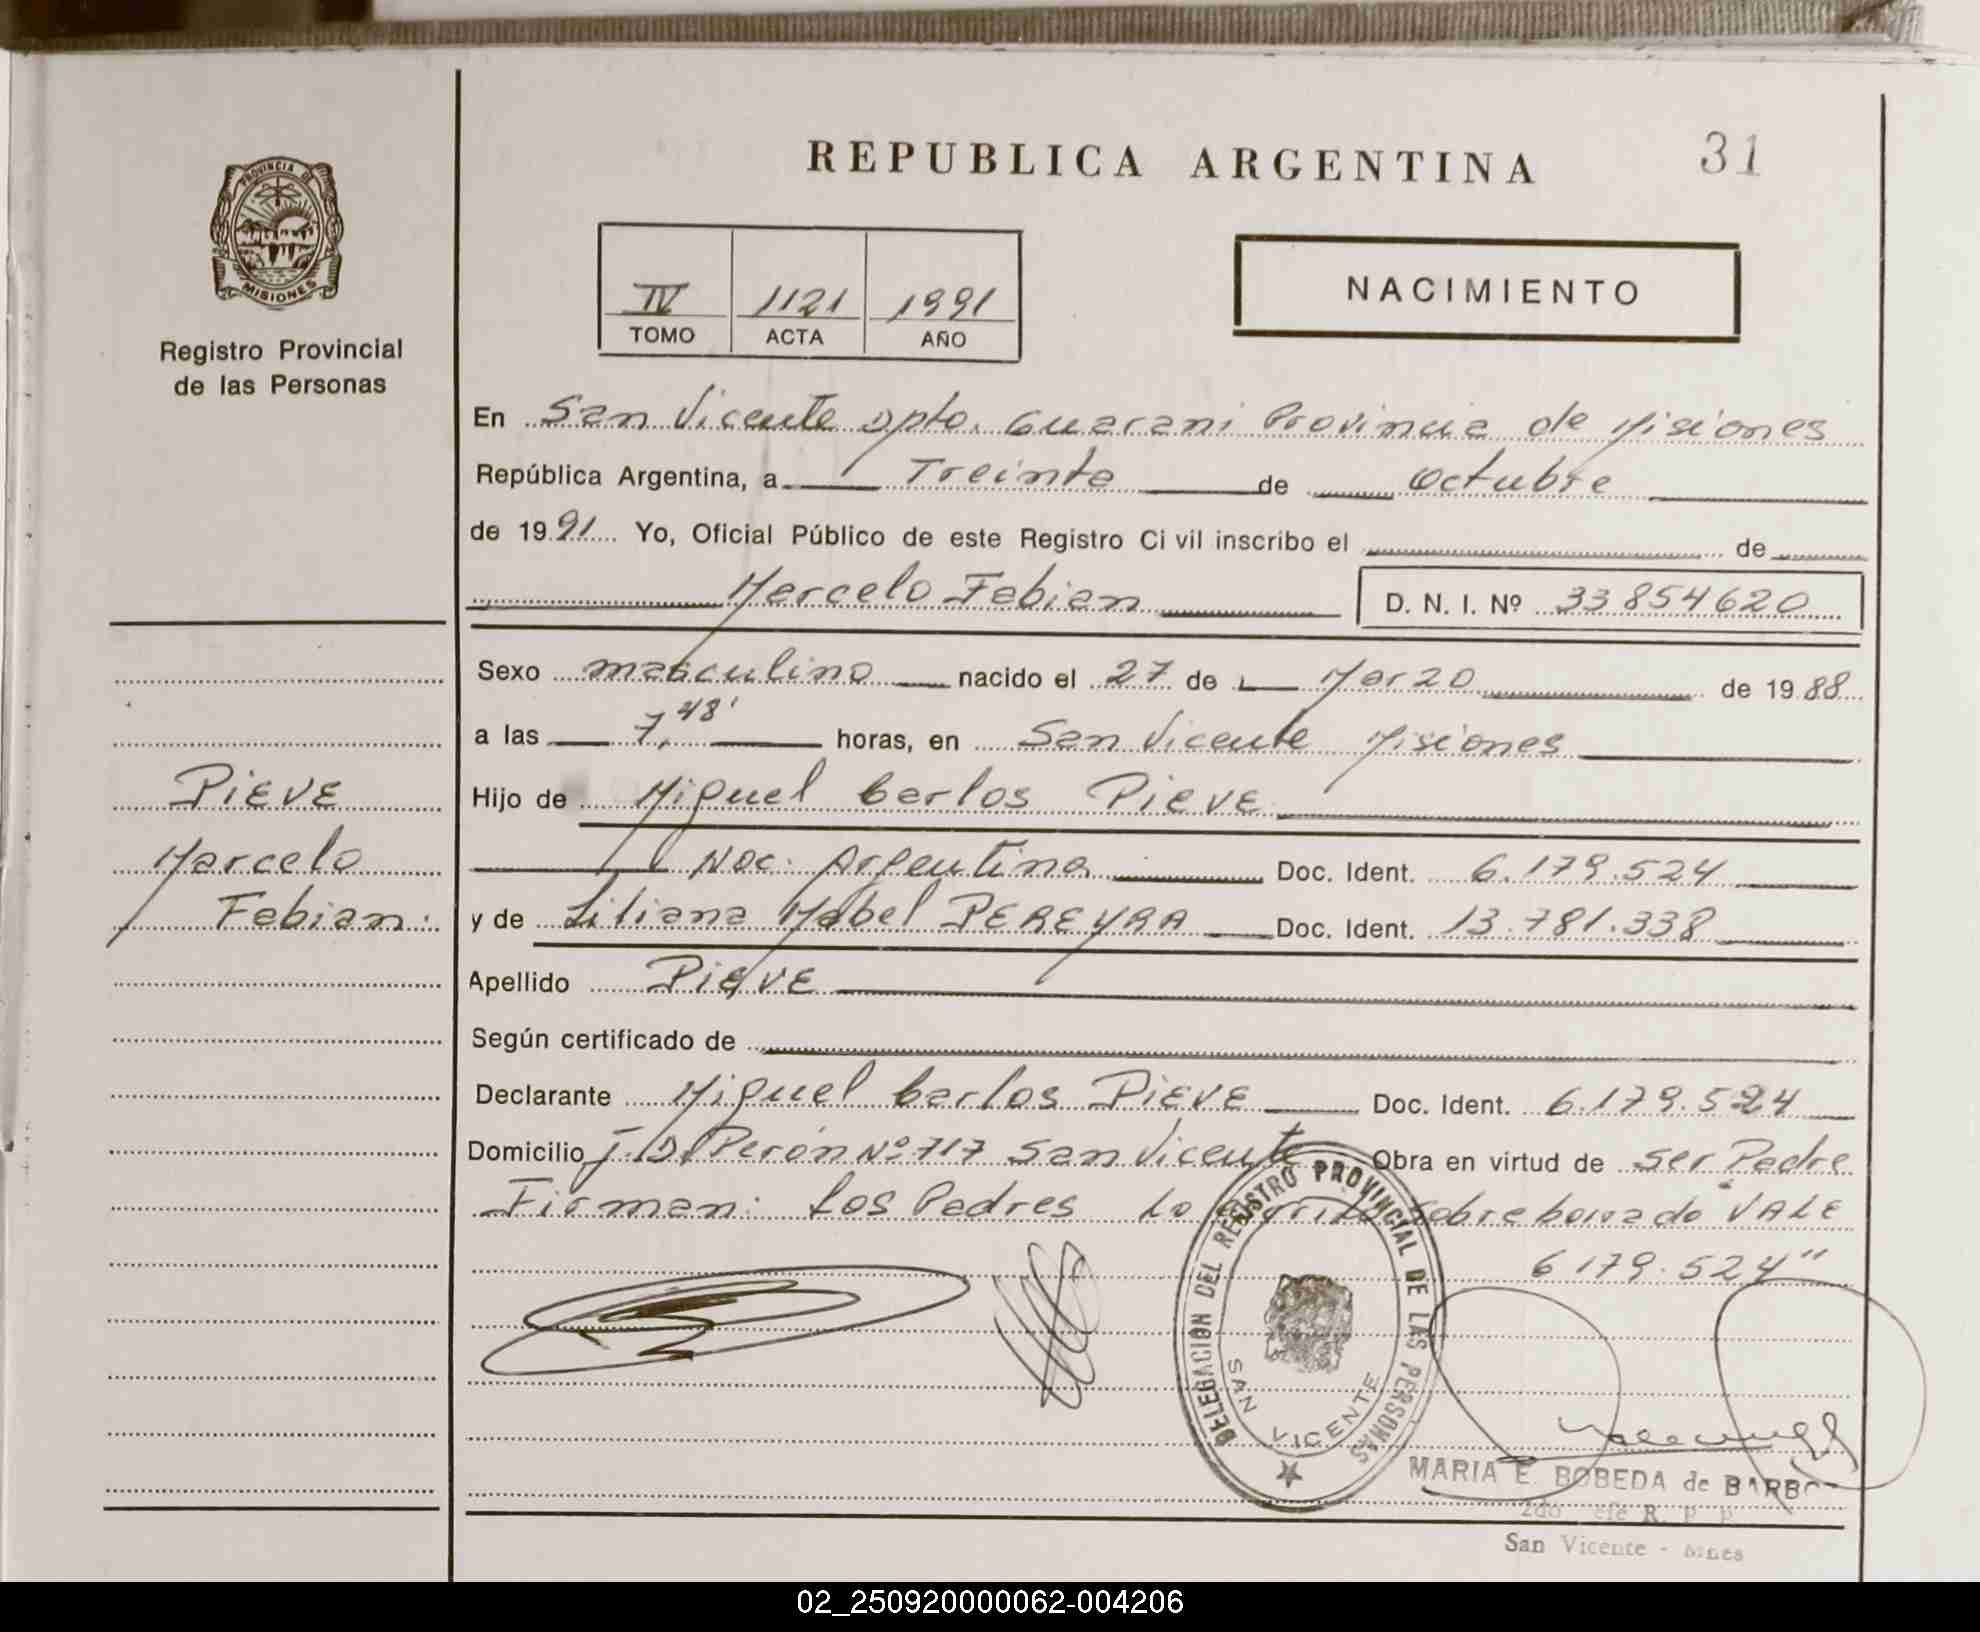 REPUBLICA ARGENTINA
31
PROVINCIA DE
MISIONES
Registro Provincial
de las Personas
IV 1121 1991
TOMO ACTA AÑO
NACIMIENTO
En San Vicente Dpto. Guarani Provincia de Misiones
República Argentina, a Treinta de Octubre
de 1991 Yo, Oficial Público de este Registro Civil inscribo el de
Marcelo Fabian D. N. I. Nº 33854620
Sexo masculino nacido el 27 de Marzo de 1988
a las 7,48' horas, en San Vicente Misiones
Hijo de Miguel Carlos PiEVE
Nac. Argentina Doc. Ident. 6.179.524
y de Liliana Mabel PEREYRA Doc. Ident. 13.781.338
Apellido PiEVE
Según certificado de
Declarante Miguel Carlos PiEVE Doc. Ident. 6.179.524
Domicilio J.D. Perón Nº 717 San Vicente Obra en virtud de ser Padre
Firman: Los Padres Lo sobre borrado VALE
6179.524"
PiEVE
Marcelo
Fabian.
DELEGACION DEL REGISTRO PROVINCIAL DE LAS PERSONAS
SAN VICENTE
MARIA E. BOBEDA de BARBO
2do efe R. P. P.
San Vicente - Mnes
02_250920000062-004206